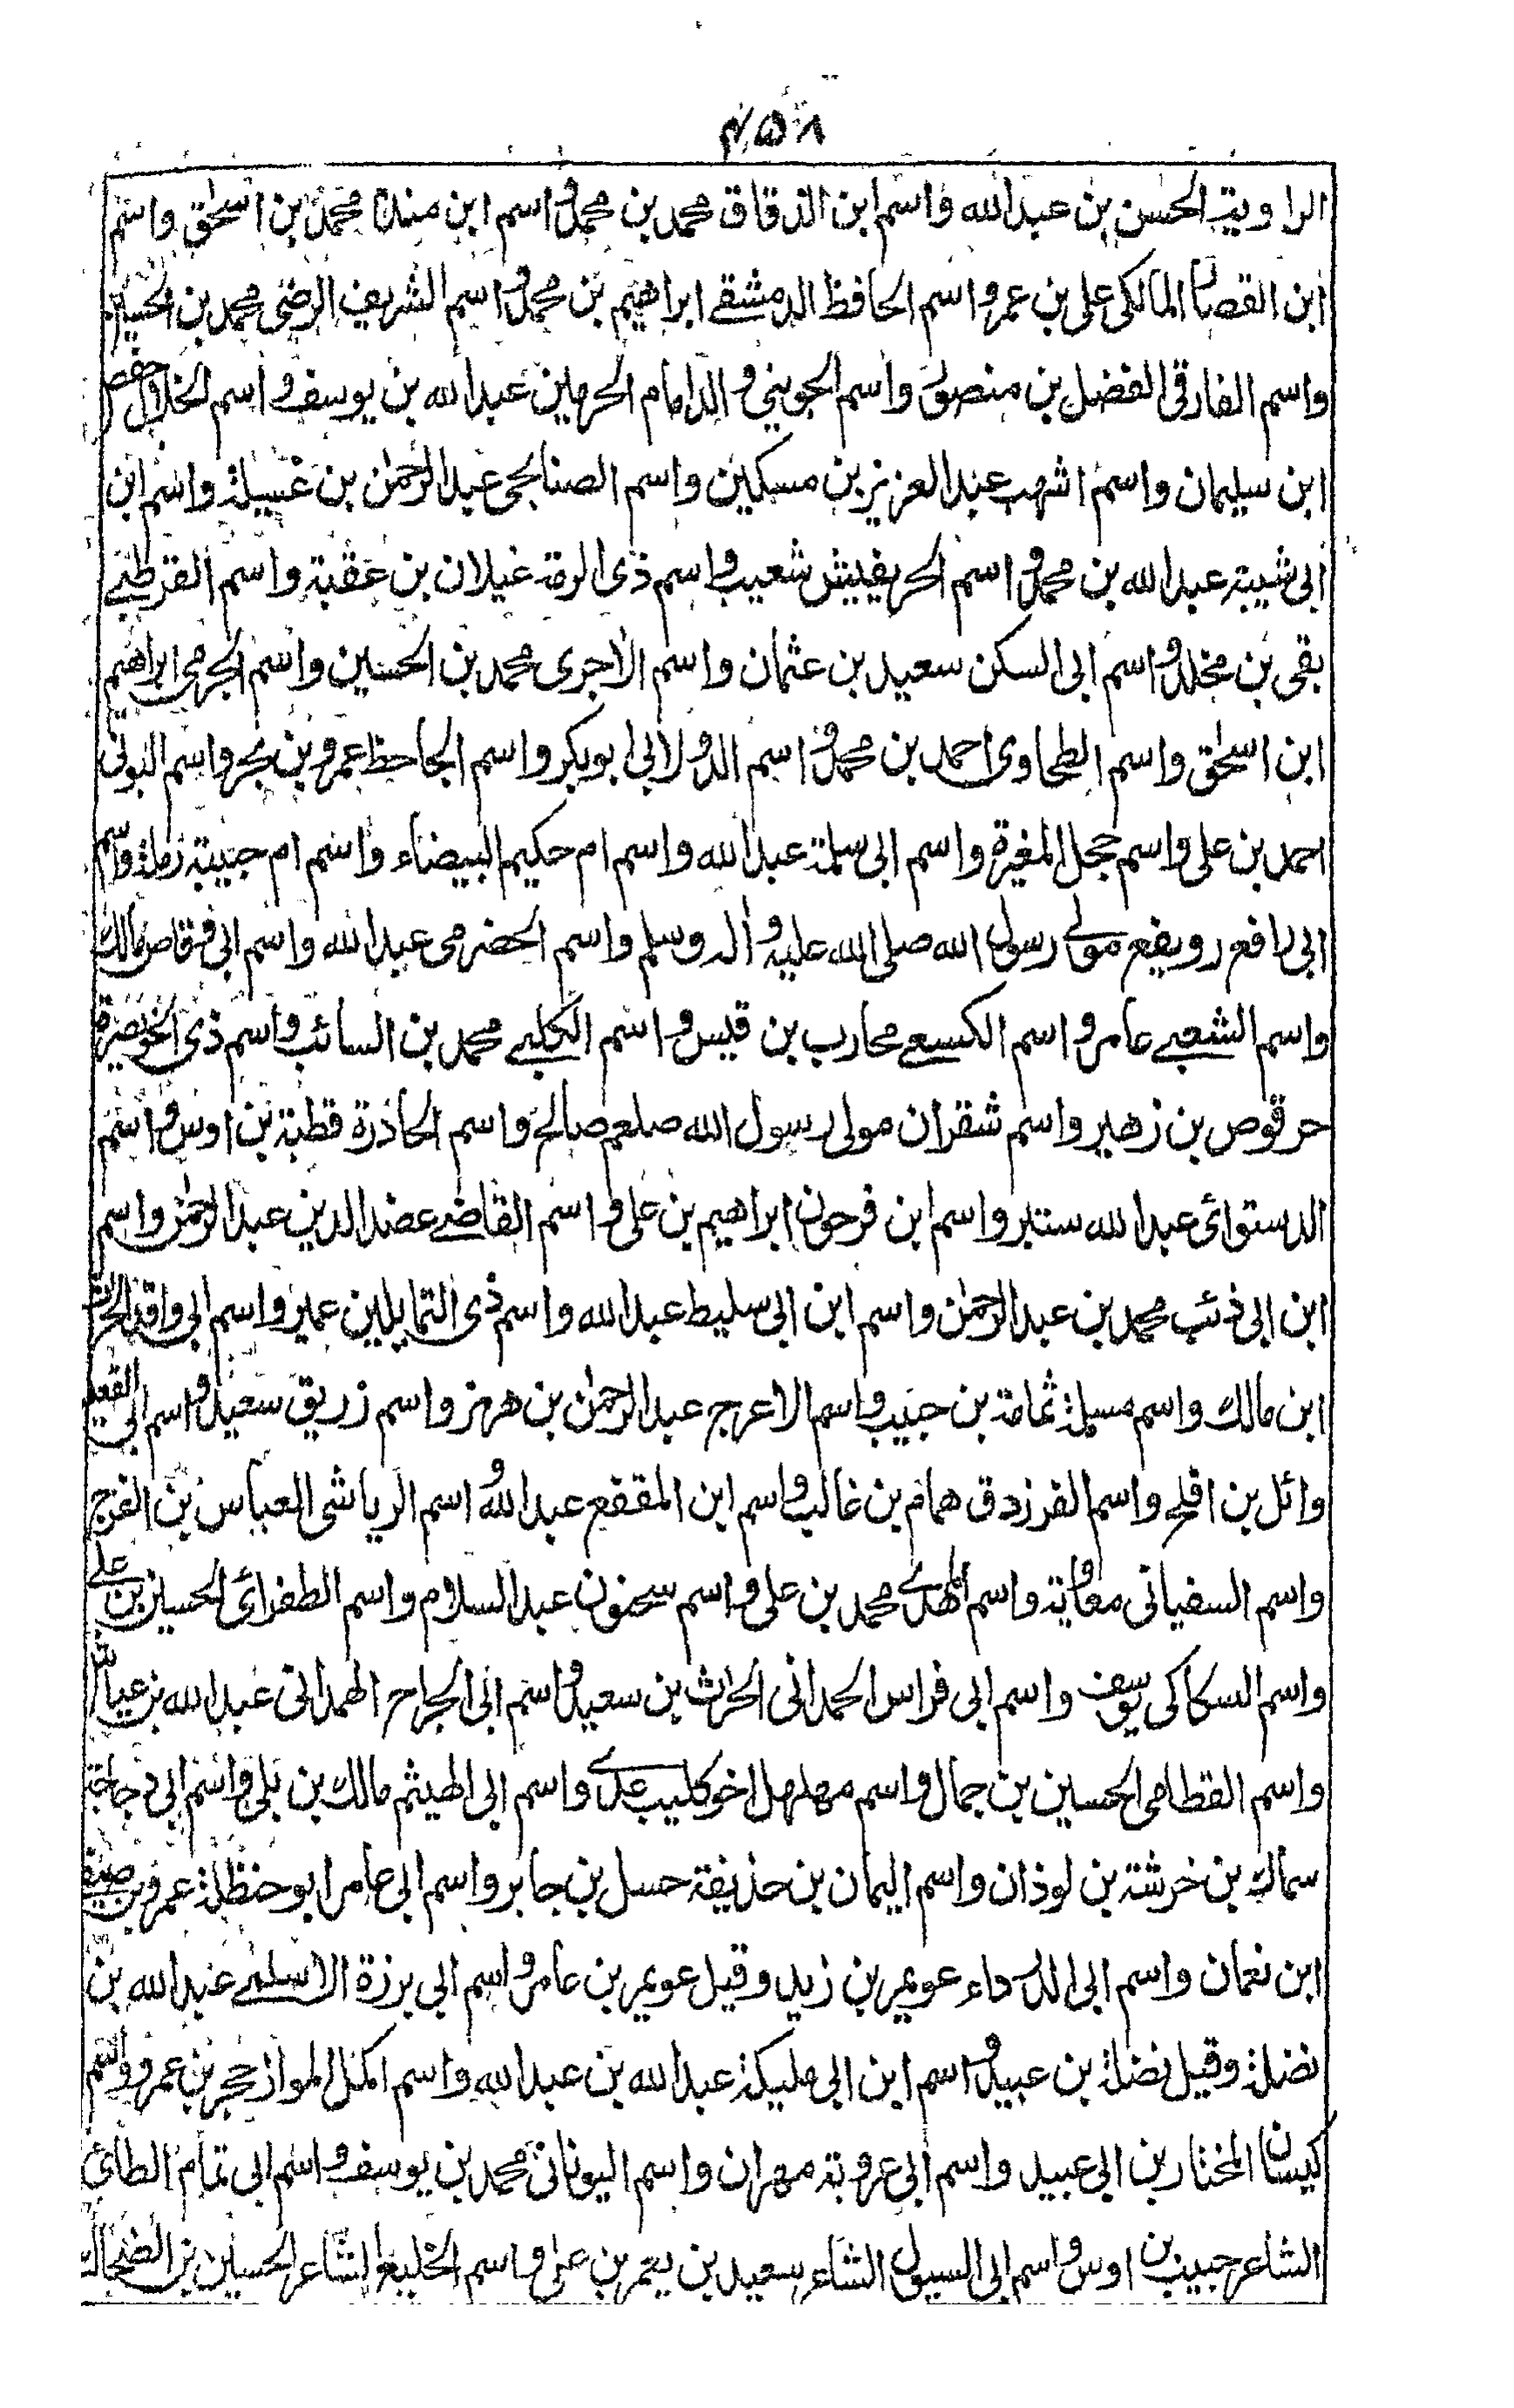 ۴۵۸
الراويته الحسن بن عبدالله واسم ابن الدقاق محمد بن محمد واسم ابن مندة محمد بن اسحٰق واسم
ابن القصار المالكى على بن عمر واسم الحافظ الدمشقے ابراهيم بن محمد واسم الشريف الرضى محمد بن الحسين
واسم الفارقى الفضل بن منصور واسم الجوينى والد امام الحرمين عبدالله بن يوسف واسم الخلال حفص
ابن سليمان واسم اشهب عبد العزيز بن مسكين واسم الصنابحى عبد الرحمٰن بن غسيلة واسم ابن
ابى شيبة عبدالله بن محمد واسم الحريفيش شعيب واسم ذى الرمة غيلان بن عقبة واسم القرطبے
بقى بن مخلد واسم ابى السكن سعيد بن عثمان واسم الآجرى محمد بن الحسين واسم الجرمى ابراهيم
ابن اسحٰق واسم الطحاوى احمد بن محمد واسم الدولابى ابو بكر واسم الجاحظ عمرو بن بحر واسم البونى
احمد بن على واسم حجل المغيرة واسم ابى سلمة عبدالله واسم ام حكيم البيضاء واسم ام حبيبة رملة واسم
ابى رافع رويفع مولے رسول الله صلى الله عليه واله وسلم واسم الحضرمى عبدالله واسم ابى وقاص مالك
واسم الشعبے عامر واسم الكسعے محارب بن قيس واسم الكلبے محمد بن السائب واسم ذى الخويصرة
حرقوص بن زهير واسم شقران مولى رسول الله صلعم صالح واسم الحادرة قطبة بن اوس واسم
الدستوائى عبدالله سنبر واسم ابن فرحون ابراهيم بن على واسم القاضے عضد الدين عبد الرحمٰن واسم
ابن ابى ذئب محمد بن عبد الرحمٰن واسم ابن ابى سليط عبدالله واسم ذى الشمالين عمير واسم ابى واقد الحرث
ابن مالك واسم مسيلمة ثمامة بن حبيب واسم الاعرج عبد الرحمٰن بن هرمز واسم زريق سعيد واسم ابى القعيس
وائل بن افلح واسم الفرزدق همام بن غالب واسم ابن المقفع عبدالله واسم الرياشى العباس بن الفرج
واسم السفيانى معاوية واسم المهدے محمد بن على واسم سحنون عبد السلام واسم الطغرائى الحسين بن علے
واسم السكاكى يوسف واسم ابى فراس الحمدانى الحرث بن سعيد واسم ابى الجراح الهمدانى عبدالله بن عياش
واسم القطامى الحسين بن جمال واسم مهلهل اخو كليب عدے واسم ابى الهيثم مالك بن بلى واسم ابى دجانة
سماك بن خرشة بن لوذان واسم اليمان بن حذيفة حسل بن جابر واسم ابى عامر ابو حنظلة عمرو بن صيفى
ابن نعمان واسم ابى الدرداء عويمر بن زيد وقيل عويمر بن عامر واسم ابى برزة الاسلمے عبدالله بن
نضلة وقيل نضلة بن عبيد واسم ابن ابى مليكة عبدالله بن عبدالله واسم اكل المرار حجر بن عمرو واسم
كيسان المختار بن ابى عبيد واسم ابى عروبة مهران واسم اليونانى محمد بن يوسف واسم ابى تمام الطائى
الشاعر حبيب بن اوس واسم ابى السيول الشاعر سعيد بن يعمر بن على واسم الخليع الشاعر الحسين بن الضحاك